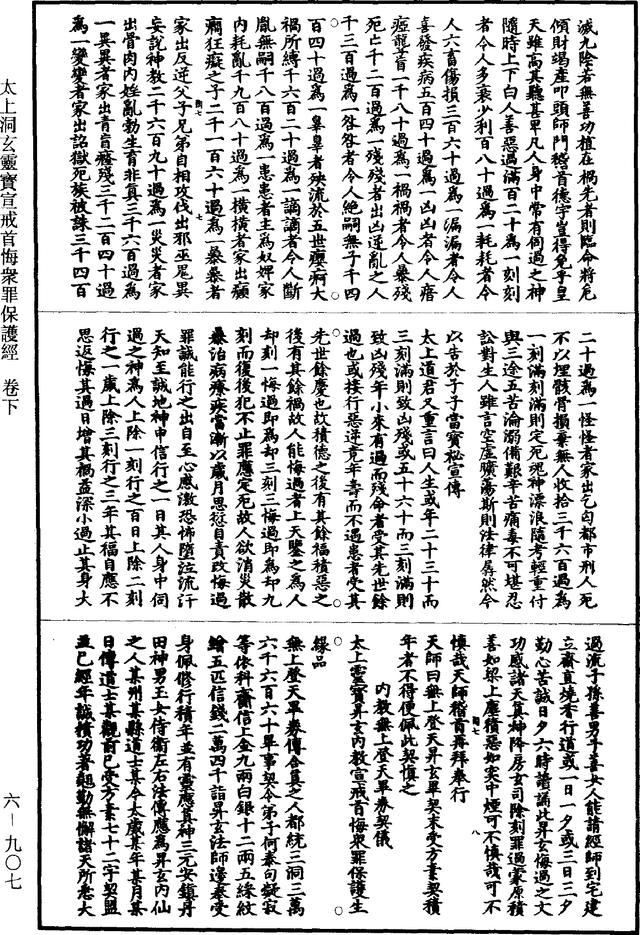 滅九陰若無善功植在禍先者則臨命將危
傾財竭產叩頭師門稽首德宇豈得免乎皇
天雖高其聽甚卑凡人身中常有伺過之神
隨時上下白人善惡過滿百二十為一刻刻
者令人多衰少利百八十過為一耗耗者令
人六畜傷損三百六十過為一漏漏者令人
喜發疾病五百四十過為一凶凶者令人瘖
瘂聾盲一千八十過為一禍禍者令人暴殘
死亡千二百過為一殘殘者出凶逆亂之人
千三百過為一咎咎者令人絕嗣無子千四
百四十過為一辜辜者殃流於五世癭病大
禍所縛千六百二十過為一謫謫者令人斷
胤無嗣千八百過為一患患者主為奴婢家
內耗亂千九百八十過為一橫橫者家出癲
癎狂癡之子二千一百六十過為一暴暴者
家出反逆父子兄弟自相攻伐出邪巫覡異
妄說神教二千六百九十過為一災災者家
出骨肉內婬亂勃生育非真三千六百過為
一異異者家出青盲癈殘三千二百四十過
為一變變者家出詔獄死族被誅三千四百
二十過為一怪怪者家出乞匃都市刑人死
不以埋骸骨損棄無人收拾三千六百過為
一刻滿刻滿則定死魂神漂浪隨考輕重付
與三途五苦淪溺備艱辛苦痛毒不可堪忍
訟對生人雖言空虛曠蕩斯則法律孱然今
以告於子子當寶秘宣傳
太上道君又重言曰人生或年二十三十而
三刻滿則致凶殘或五十六十而三刻滿則
致凶殘年小來有過而殘命者受其先世餘
過也或接行惡逆竟年壽而不遇患者受其
先世餘慶也故積德之後有其餘福積惡之
後有其餘禍故人能悔過者上天鑒之為人
却刻一悔過即為却三刻三悔過即為却九
刻而復後犯不止罪應定死故人欲消災散
暴治病療疾當漸以歲月思愆自責改悔過
罪誠能行之出自至心感激恐怖墮泣流汗
天知至誠地神申信行之一日其人身中伺
過之神為人上除一刻行之百日上除二刻
行之一歲上除三刻行之三年其福自應不
思返悔其過日增其禍盃深小過止其身大
過流子孫善男子善女人能請經師到宅建
立齋直燒香行道或一日一夕或三日三夕
勤心苦誠日夕六時讀誦此昇玄悔過之文
功感諸天真神降房玄司除刻罪過蒙原積
善如梁上塵積惡如突中煙可不慎哉可不
慎哉天師稽首再拜奉行
天師曰無上登天昇玄畢契未受方素契積
年者不得便佩此契慎之
內教無上登天畢券契儀
太上靈寶昇玄內教宣戒首悔眾罪保護生
緣品
無上登天畢券傳合負之人都統三洞三萬
六千六百六十畢事契令弟子何泰句凝寂
等依科齎信上金九兩白銀十二兩五綵紋
繒五匹信錢二萬四千詣昇玄法師邊奉受
身佩修行積年並有靈應真神三元安鎮丹
田神男玉女侍衛左右法傳應為昇玄內仙
之人某州某縣道士某今太歲某年某月某
日傳道士某觀前已受方素七十二字契盟
並已經年誠積功著勉勤無懈諸天所悉大
太上洞玄靈寶宣戒首悔衆罪保護經 卷下
六－九〇七